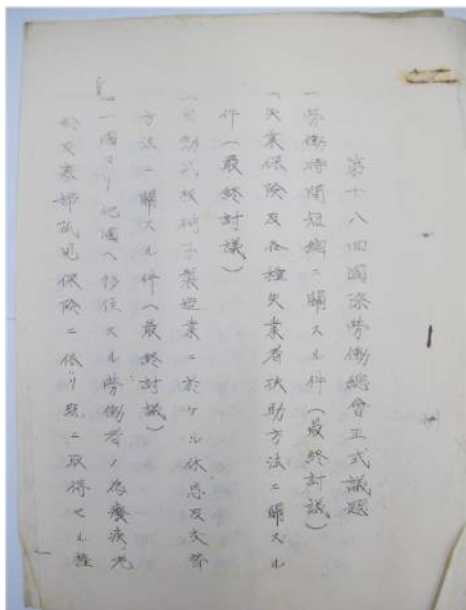 第十八回國際勞働總會正式議題
一勞働時間短縮ニ關スル件(最終討議)
一失業保險及各種失業者扶助方法ニ關スル
件(最終討議)
一自動式板硝子製造業ニ於ケル休息及交替
方法ニ關スル件(最終討議)
一一國ヨリ他國ヘ移住スル勞働者ノ爲癈疾老
齡及寡婦孤兒保險ニ依リ既ニ取得セル權